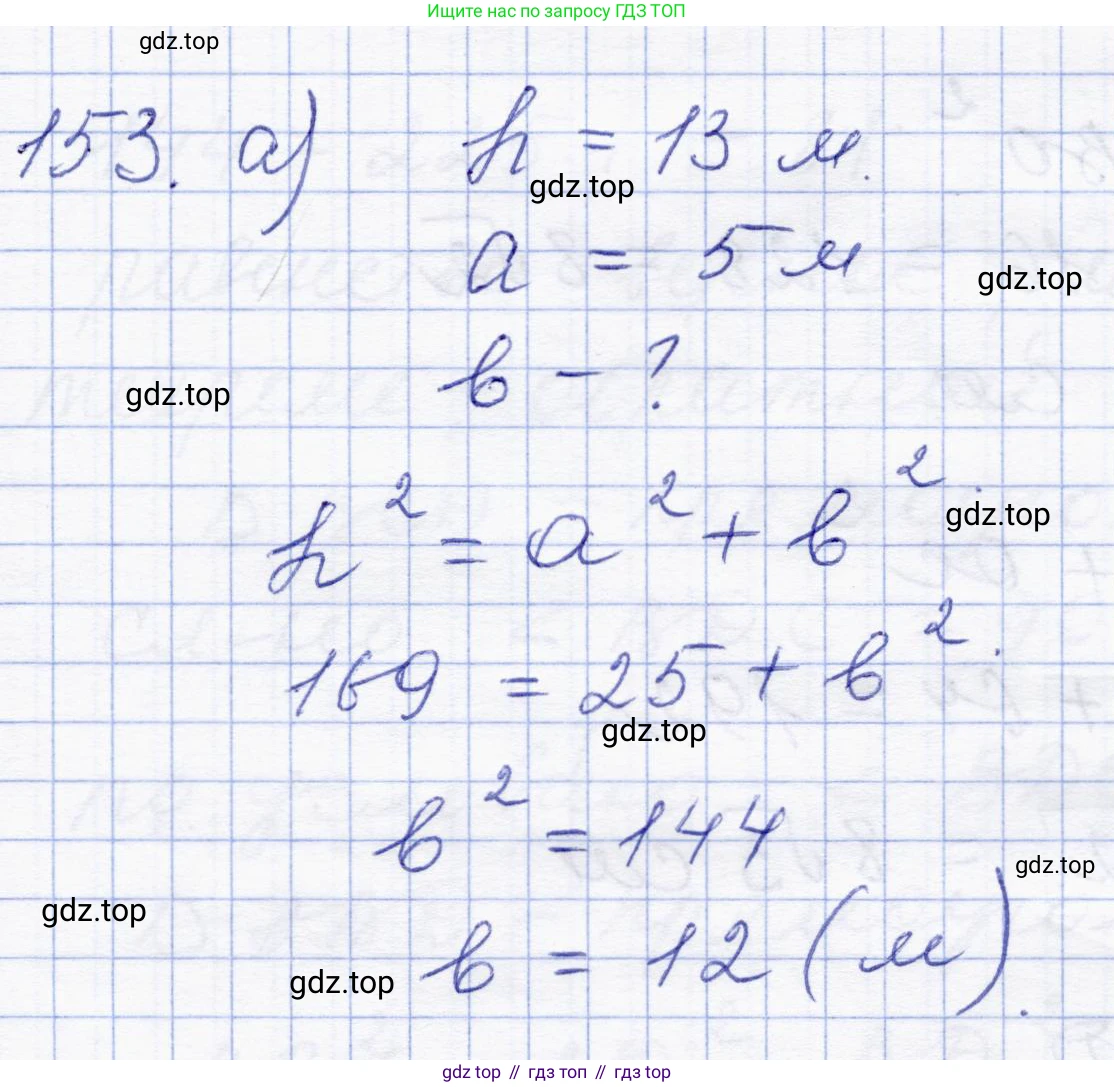 Ищите нас по запросу ГДЗ ТОП
gdz.top
153. а) h = 13 м.
gdz.top
a = 5 м
gdz.top
b - ?
gdz.top
h² = a² + b².
gdz.top
169 = 25 + b².
gdz.top
b² = 144
gdz.top
gdz.top
b = 12 (м).
gdz.top
gdz top // гдз топ // gdz top